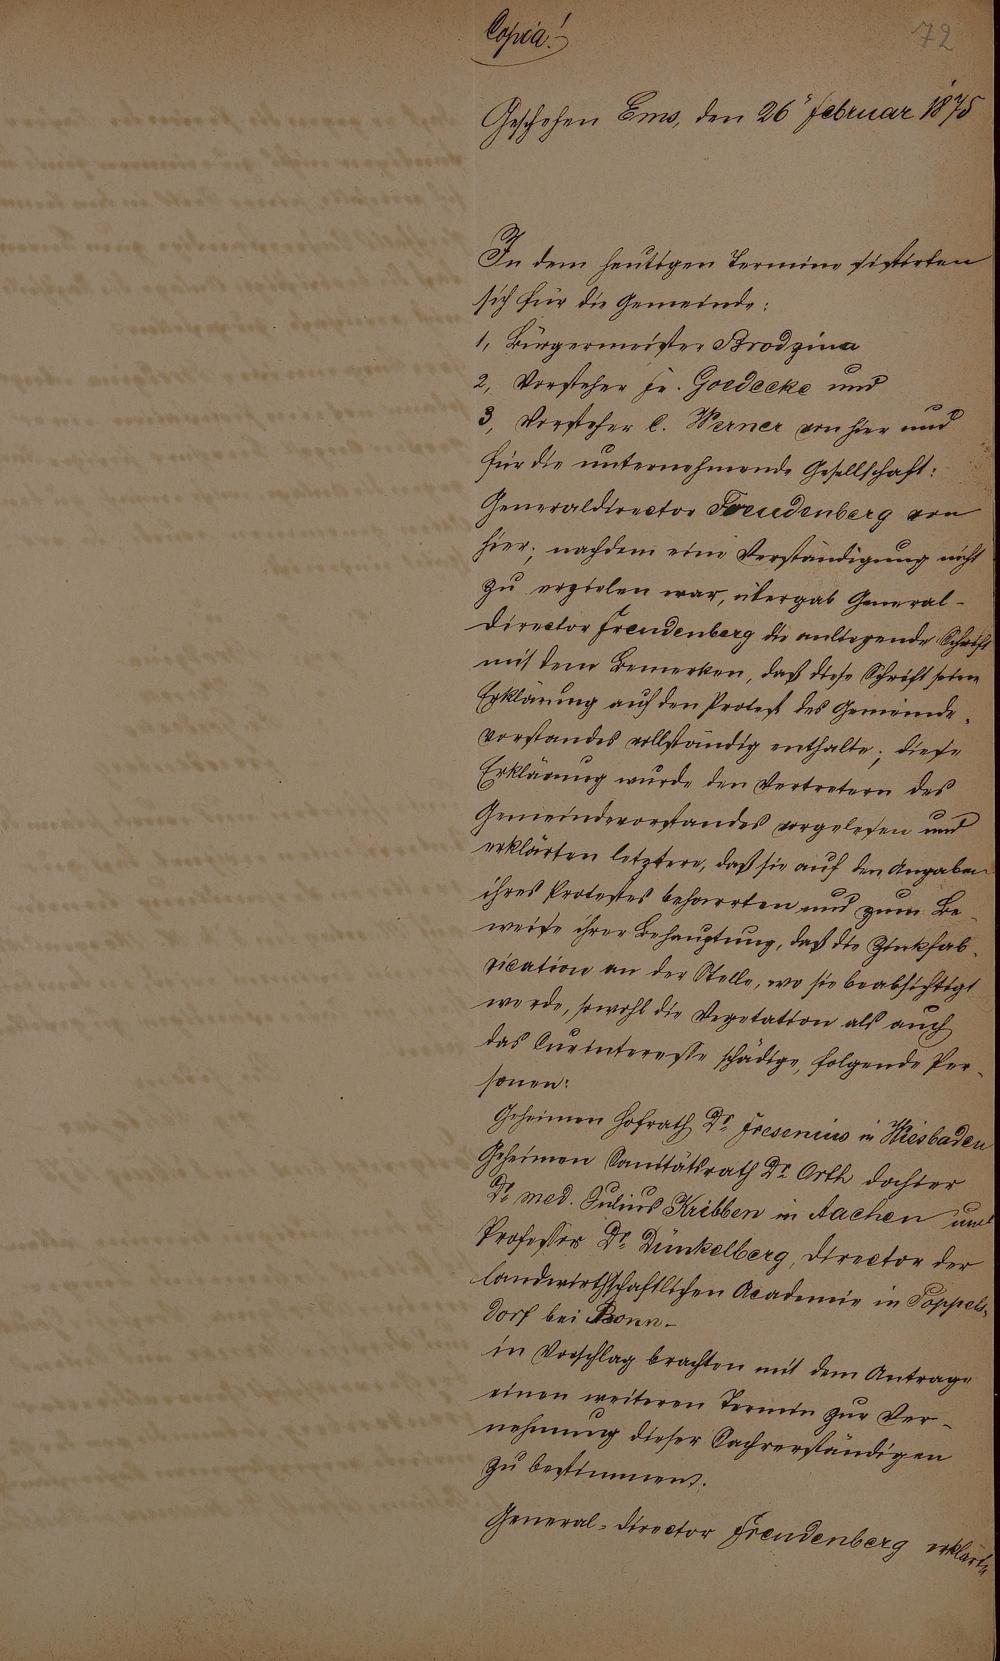 Copia!
72
Geschehen Ems, den 26t Februar 1875
In dem heutigen Termine sistirten
sich für die Gemeinde:
1, Bürgermeister Brodzina
2, Vorsteher Fr. Goedecke und
3, Vorsteher C. Werner von hier und
für die unternehmende Gesellschaft:
Generaldirector Freudenberg von
hier; nachdem eine Verständigung nicht
zu erzielen war, übergab General-
director Freudenberg die anliegende Schrift
mit dem Bemerken, daß diese Schrift seine
Erklärung auf den Protest des Gemeinde-
vorstandes vollständig enthalte; diese
Erklärung wurde den Vertretern des
Gemeindevorstandes vorgelesen und
erklärten letztere, daß sie auf den Angaben
ihres Protestes beharrten und zum Be-
weise ihrer Behauptung, daß die Zinkfab-
rication an der Stelle, wo sie beabsichtigt
werde, sowohl die Vegetation als auch
das Curinteresse schädige, folgende Per-
sonen:
Geheimen Hofrath Dr. Fresenius in Wiesbaden
Geheimen Sanitätsrath Dr. Orth dahier
Dr. med. Julius Kribben in Aachen und
Professor Dr. Dünkelberg, Director der
landwirthschaftlichen Academie in Poppels-
dorf bei Bonn-
in Vorschlag brachten mit dem Antrage
einen weiteren Termin zur Ver-
nehmung dieser Sachverständigen
zu bestimmen.
General-director Freudenberg erklärte